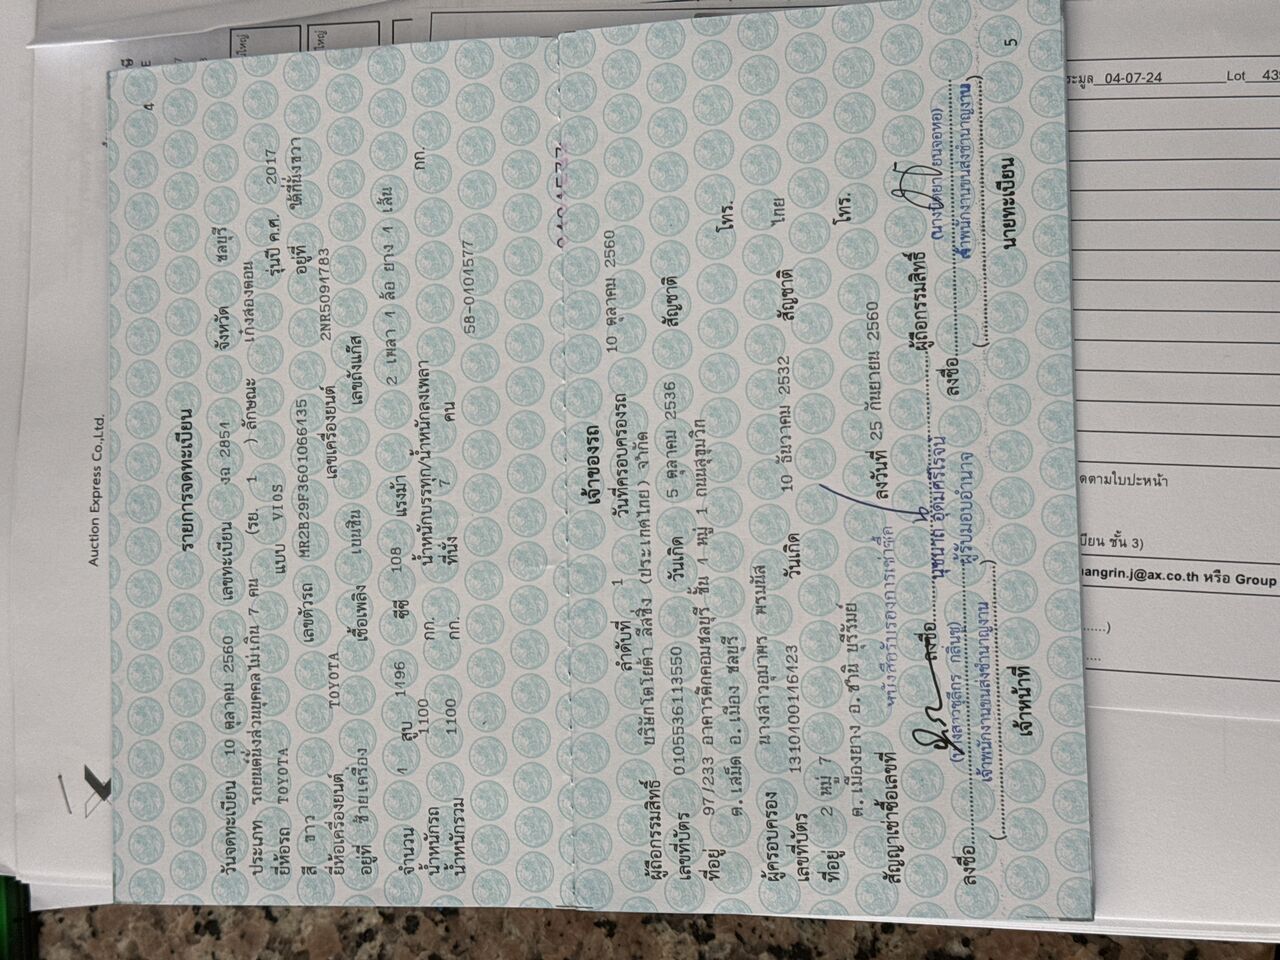 Auction Express Co.,Ltd.
4
รายการจดทะเบียน
วันจดทะเบียน 10 ตุลาคม 2560 เลขทะเบียน งฉ 2851 จังหวัด ชลบุรี
ประเภท รถยนต์นั่งส่วนบุคคลไม่เกิน 7 คน (รย. 1 ) ลักษณะ เก๋งสองตอน
ยี่ห้อรถ TOYOTA แบบ VIOS รุ่นปี ค.ศ. 2017
สี ขาว เลขตัวรถ MR2B29F3601066135 อยู่ที่ ใต้ที่นั่งขวา
ยี่ห้อเครื่องยนต์ TOYOTA เลขเครื่องยนต์ 2NR5091783
อยู่ที่ ซ้ายเครื่อง เชื้อเพลิง เบนซิน เลขถังแก๊ส
จำนวน 4 สูบ 1496 ซีซี 108 แรงม้า 2 เพลา 4 ล้อ ยาง 4 เส้น
น้ำหนักรถ 1100 กก. น้ำหนักบรรทุก/น้ำหนักลงเพลา กก.
น้ำหนักรวม 1100 กก. ที่นั่ง 7 คน
58-0101577
เจ้าของรถ
ลำดับที่ 1 วันที่ครอบครองรถ 10 ตุลาคม 2560
ผู้ถือกรรมสิทธิ์ บริษัทโตโยต้า ลีสซิ่ง (ประเทศไทย) จำกัด
เลขที่บัตร 0105536113550 วันเกิด 5 ตุลาคม 2536 สัญชาติ
ที่อยู่ 97/233 อาคารตึกคอมชลบุรี ชั้น 4 หมู่ 1 ถนนสุขุมวิท
ต.เสม็ด อ.เมือง ชลบุรี โทร.
ผู้ครอบครอง นางสาวอุมาพร พรมนัส
เลขที่บัตร 1310100146123 วันเกิด 10 ธันวาคม 2532 สัญชาติ ไทย
ที่อยู่ 2 หมู่ 7
ต.เมืองยาง อ.ชำนิ บุรีรัมย์ โทร.
สัญญาเช่าซื้อเลขที่ หนังสือรับรองการเช่าซื้อ ลงวันที่ 25 กันยายน 2560
ลงชื่อ นุชนาถ อุดมศรีไรจน์ ผู้ถือกรรมสิทธิ์
ผู้รับมอบอำนาจ
ลงชื่อ
(นางสาวชูลีกร กลินบุ)
เจ้าพนักงานขนส่งชำนาญงาน
เจ้าหน้าที่
ลงชื่อ
เจ้าพนักงานขนส่งชำนาญงาน
นายทะเบียน
5
04-07-24 Lot
ตามใบปะหน้า
ชั้น 3)
angrin.j@ax.co.th หรือ Group